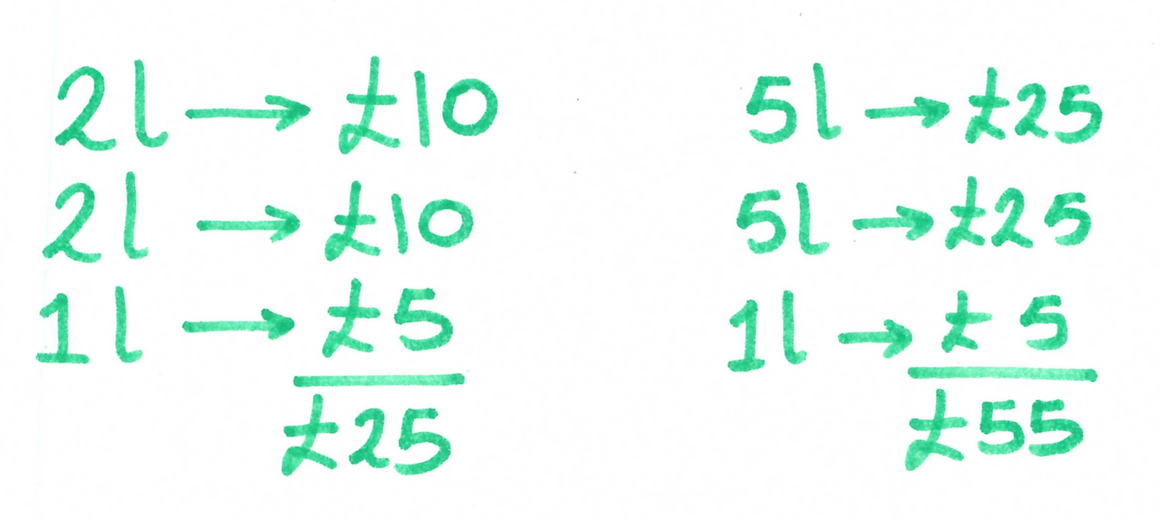 2l → £10
2l → £10
1l → £5
£25
5l → £25
5l → £25
1l → £5
£55